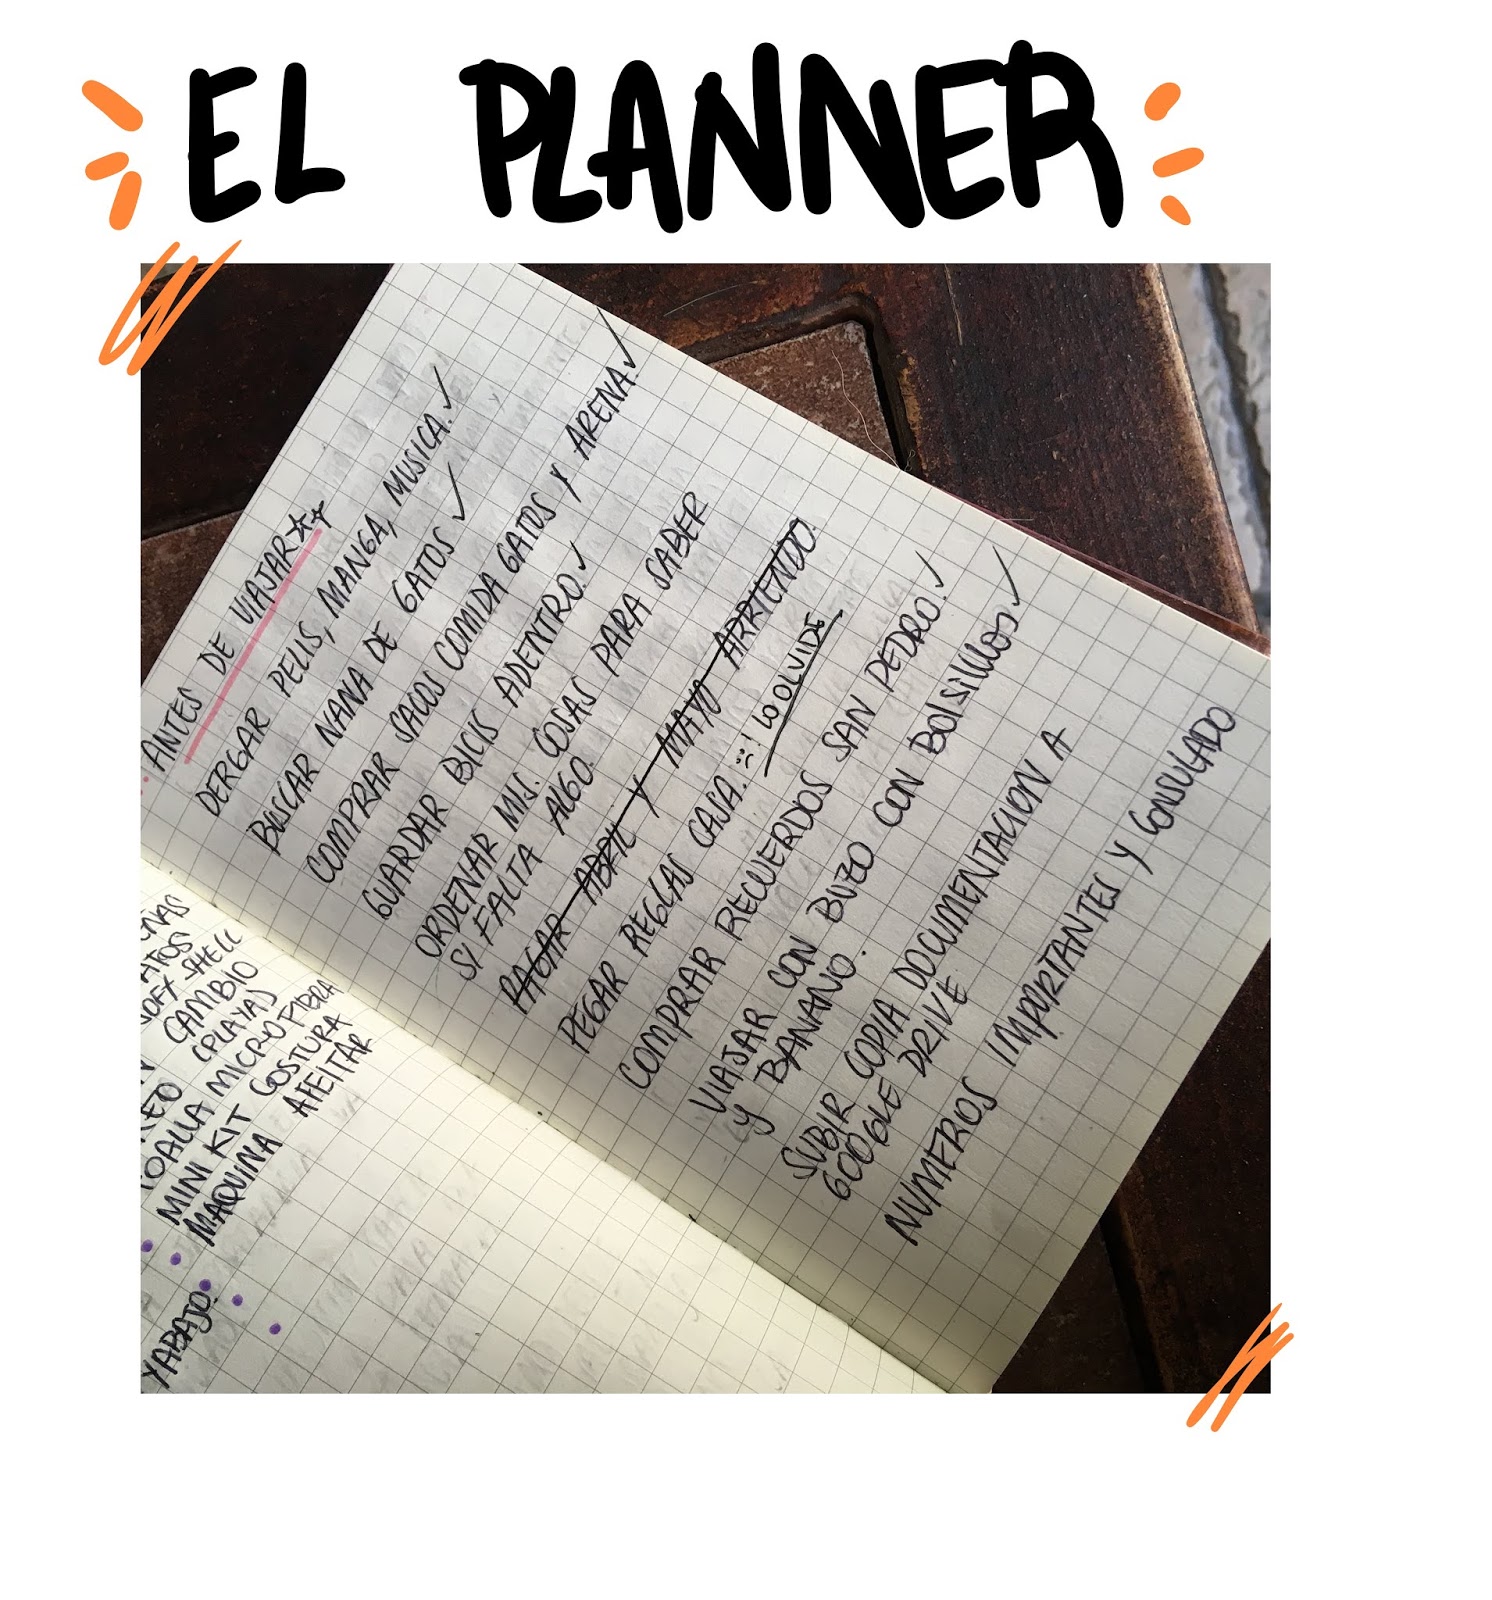 EL PLANNER
ANTES DE VIAJAR
DERGAR PELIS, MANGA, MUSICA. ✓
BUSCAR NANA DE GATOS ✓
COMPRAR SACOS COMIDA GATOS Y ARENA. ✓
GUARDAR BICIS ADENTRO. ✓
ORDENAR MIS. COSAS PARA SABER
SI FALTA ALGO.
PAGAR ABRIL Y MAYO ARRIENDO.
PEGAR REGLAS CASA. :( ! LO OLVIDE
COMPRAR RECUERDOS SAN PEDRO. ✓
VIAJAR CON BUZO CON BOLSILLOS ✓
Y BANANO.
SUBIR COPIA DOCUMENTACION A
GOOGLE DRIVE
NUMEROS IMPORTANTES Y CONSULADO
SOFT SHELL
CAMBIO
(PLAYA)
TOALLA MICROFIBRA
MINI KIT COSTURA
MAQUINA AFEITAR